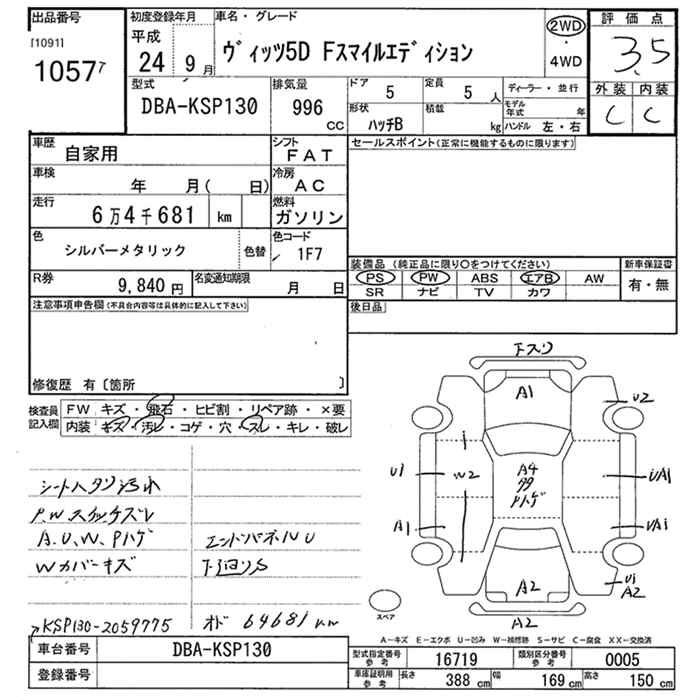 出品番号
[1091]
1057 7
初度登録年月
平成
24 9月
車名・グレード
ヴィッツ5D Fスマイルエディション
2WD
・
4WD
評価点
3.5
外装 内装
C C
型式
DBA-KSP130
排気量
996
cc
ドア
5
定員
5 人
形状
ハッチB
積載
kg
ディーラー・並行
モデル年式 年
ハンドル 左・右
車歴
自家用
シフト
FAT
車検
年 月( 日)
冷房
AC
走行
6万4千681 km
燃料
ガソリン
色
シルバーメタリック
色替
色コード
1F7
R券
9,840 円
名変通知期限
月 日
セールスポイント(正常に機能するものに限ります)
装備品(純正品に限り○をつけてください)
PS PW ABS エアB AW
SR ナビ TV カワ
新車保証書
有・無
後日品
注意事項申告欄(不具合内容等は具体的に記入して下さい)
修復歴 有〔箇所 〕
検査員記入欄
FW キズ・飛石・ヒビ割・リペア跡・×要
内装 キズ・汚レ・コゲ・穴・スレ・キレ・破レ
シートヘタリ汚れ
P.Wスイッチズレ
A.U.W.Pハゲ
Wカバーキズ
エンドパネルU
下廻りS
KSP130-2059775
オド 64681km
Fスリ
A1
U2
U1
W2
A4
タタ
Pハゲ
UA1
A1
UA1
A2
U1
A2
A2
スペア
A-キズ E-エクボ U-凹み W-補修跡 S-サビ C-腐食 XX-交換済
車台番号
DBA-KSP130
登録番号
型式指定番号
参考
16719
類別区分番号
参考
0005
車庫証明用
参考
長さ
388 cm
幅
169 cm
高さ
150 cm